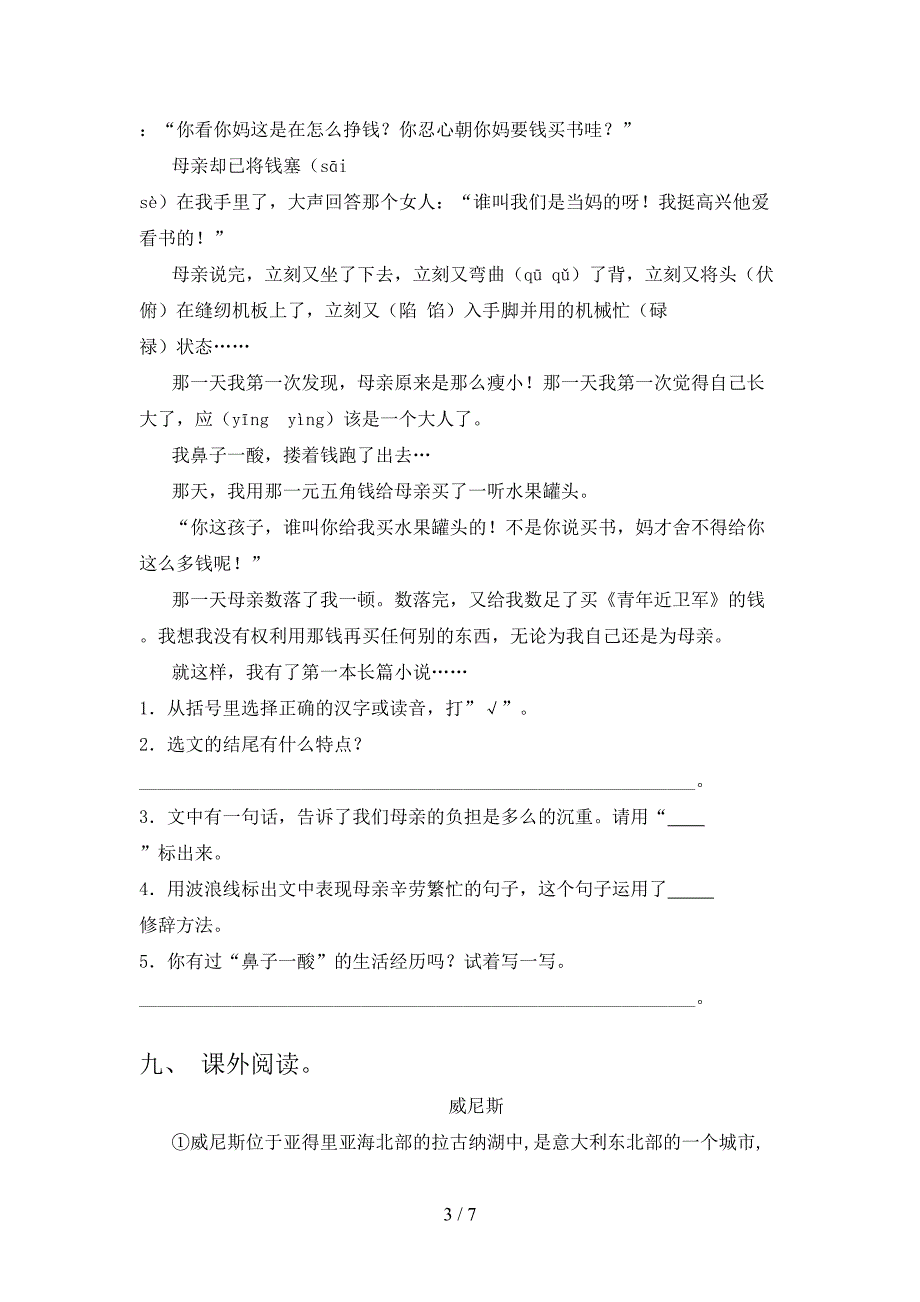 ：“你看你妈这是在怎么挣钱？你忍心朝你妈要钱买书哇？”
母亲却已将钱塞（sāi
sè）在我手里了，大声回答那个女人：“谁叫我们是当妈的呀！我挺高兴他爱
看书的！”
母亲说完，立刻又坐了下去，立刻又弯曲（qū qǔ）了背，立刻又将头（伏
俯）在缝纫机板上了，立刻又（陷 馅）入手脚并用的机械忙（碌
禄）状态……
那一天我第一次发现，母亲原来是那么瘦小！那一天我第一次觉得自己长
大了，应（yīng yìng）该是一个大人了。
我鼻子一酸，搂着钱跑了出去…
那天，我用那一元五角钱给母亲买了一听水果罐头。
“你这孩子，谁叫你给我买水果罐头的！不是你说买书，妈才舍不得给你
这么多钱呢！”
那一天母亲数落了我一顿。数落完，又给我数足了买《青年近卫军》的钱
。我想我没有权利用那钱再买任何别的东西，无论为我自己还是为母亲。
就这样，我有了第一本长篇小说……
1．从括号里选择正确的汉字或读音，打”√”。
2．选文的结尾有什么特点？
____________________________________________________________。
3．文中有一句话，告诉了我们母亲的负担是多么的沉重。请用“____
”标出来。
4．用波浪线标出文中表现母亲辛劳繁忙的句子，这个句子运用了_____
修辞方法。
5．你有过“鼻子一酸”的生活经历吗？试着写一写。
____________________________________________________________。
九、 课外阅读。
威尼斯
①威尼斯位于亚得里亚海北部的拉古纳湖中,是意大利东北部的一个城市,
3 / 7